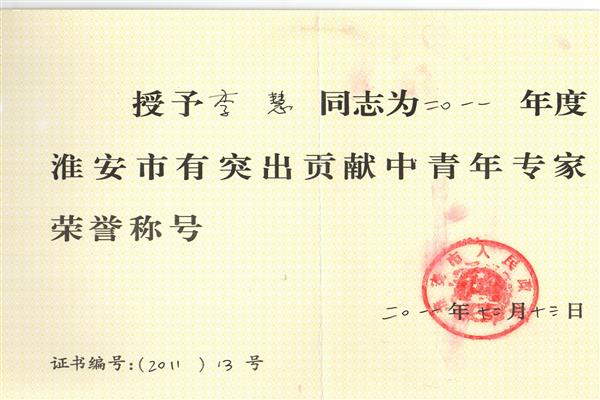 授予李慧同志为二〇一一年度
淮安市有突出贡献中青年专家
荣誉称号
淮安市人民政
二〇一一年十二月十三日
证书编号:(2011)13号